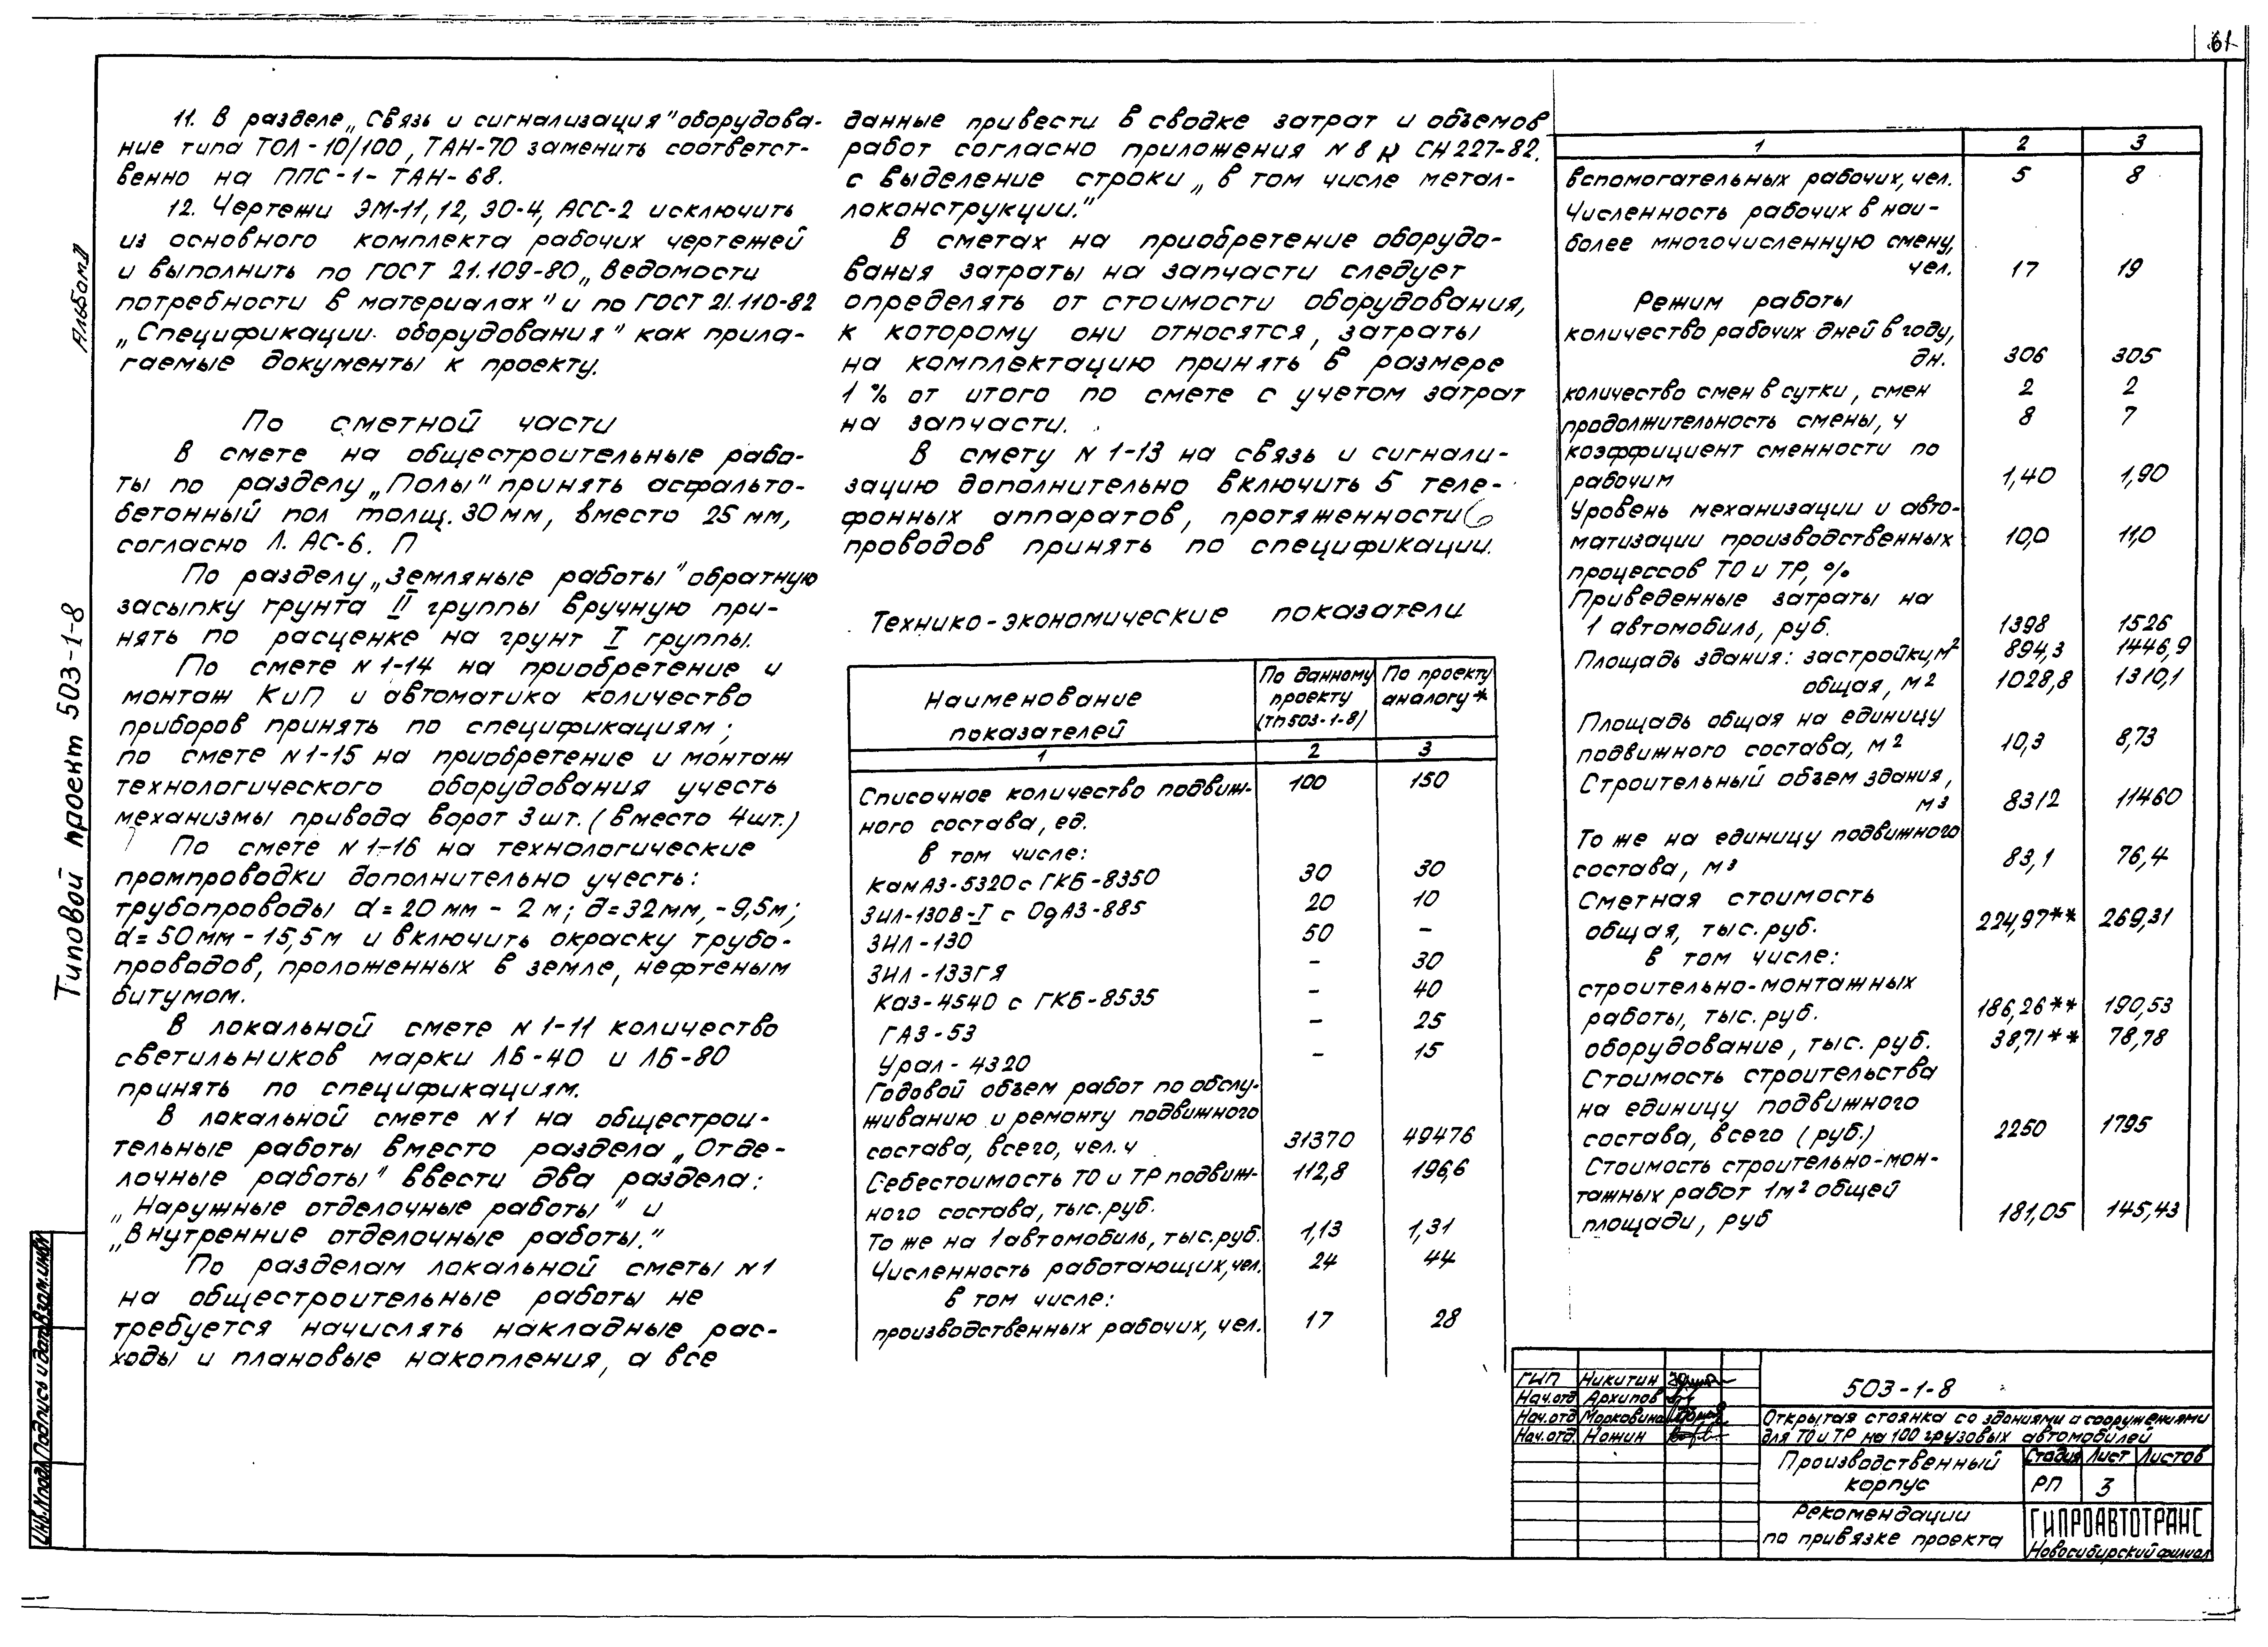 61
Альбом II
Типовой проект 503-1-8
11. В разделе „Связь и сигнализация" оборудова-
ние типа ТОЛ-10/100, ТАН-70 заменить соответст-
венно на ППС-1- ТАН-68.
12. Чертежи ЭМ-11,12, ЭО-4, АСС-2 исключить
из основного комплекта рабочих чертежей
и выполнить по ГОСТ 21.109-80 „Ведомости
потребности в материалах" и по ГОСТ 21.110-82
„Спецификации оборудования" как прила-
гаемые документы к проекту.
По сметной части
В смете на общестроительные рабо-
ты по разделу „Полы" принять асфальто-
бетонный пол толщ. 30 мм, вместо 25 мм,
согласно Л. АС-6. П
По разделу „Земляные работы" обратную
засыпку грунта II группы вручную при-
нять по расценке на грунт I группы.
По смете N 1-14 на приобретение и
монтаж КиП и автоматика количество
приборов принять по спецификациям;
по смете N 1-15 на приобретение и монтаж
технологического оборудования учесть
механизмы привода ворот 3 шт. (вместо 4 шт.)
По смете N 1-16 на технологические
промпроводки дополнительно учесть:
трубопроводы d=20 мм - 2 м; d=32 мм, - 9,5 м;
d=50 мм - 15,5 м и включить окраску трубо-
проводов, проложенных в земле, нефтеным
битумом.
В локальной смете N 1-11 количество
светильников марки ЛБ-40 и ЛБ-80
принять по спецификациям.
В локальной смете N 1 на общестрои-
тельные работы вместо раздела „Отде-
лочные работы" ввести два раздела:
„Наружные отделочные работы" и
„Внутренние отделочные работы."
По разделам локальной сметы N 1
на общестроительные работы не
требуется начислять накладные рас-
ходы и плановые накопления, а все
данные привести в сводке затрат и объемов
работ согласно приложения N 8 к СН 227-82.
с выделение строки „в том числе метал-
локонструкции."
В сметах на приобретение оборудо-
вания затраты на запчасти следует
определять от стоимости оборудования,
к которому они относятся, затраты
на комплектацию принять в размере
1 % от итого по смете с учетом затрат
на запчасти.
В смету N 1-13 на связь и сигнали-
зацию дополнительно включить 5 теле-
фонных аппаратов, протяженности
проводов принять по спецификации.
Технико-экономические показатели
Наименование показателей По данному проекту (ТП503-1-8) По проекту аналогу*
1 2 3
Списочное количество подвиж- 100 150
ного состава, ед.
в том числе:
КамАЗ-5320 с ГКБ-8350 30 30
ЗИЛ-130В-I с ОдАЗ-885 20 10
ЗИЛ-130 50 -
ЗИЛ-133ГЯ - 30
Каз-4540 с ГКБ-8535 - 40
ГАЗ-53 - 25
Урал-4320 - 15
Годовой объем работ по обслу-
живанию и ремонту подвижного
состава, всего, чел.ч 31370 49476
Себестоимость ТО и ТР подвиж- 112,8 196,6
ного состава, тыс.руб.
То же на 1 автомобиль, тыс.руб. 1,13 1,31
Численность работающих, чел. 24 44
в том числе:
производственных рабочих, чел. 17 28
1 2 3
вспомогательных рабочих, чел. 5 8
Численность рабочих в наи-
более многочисленную смену,
чел. 17 19
Режим работы
количество рабочих дней в году,
дн. 306 305
количество смен в сутки, смен 2 2
продолжительность смены, ч 8 7
коэффициент сменности по
рабочим 1,40 1,90
Уровень механизации и авто-
матизации производственных 10,0 11,0
процессов ТО и ТР, %
Приведенные затраты на
1 автомобиль, руб. 1398 1526
Площадь здания: застройки, м² 894,3 1446,9
общая, м² 1028,8 1310,1
Площадь общая на единицу
подвижного состава, м² 10,3 8,73
Строительный объем здания,
м³ 8312 11460
То же на единицу подвижного
состава, м³ 83,1 76,4
Сметная стоимость
общая, тыс.руб. 224,97** 269,31
в том числе:
строительно-монтажных
работы, тыс.руб. 186,26** 190,53
оборудование, тыс. руб. 38,71** 78,78
Стоимость строительства
на единицу подвижного
состава, всего (руб.) 2250 1795
Стоимость строительно-мон-
тажных работ 1 м² общей
площади, руб 181,05 145,43
ГИП Никитин
Нач.отд Архипов
Нач.отд Марковина
Нач.отд. Ножин
503-1-8
Открытая стоянка со зданиями и сооружениями
для ТО и ТР на 100 грузовых автомобилей
Производственный
корпус
Стадия Лист Листов
РП 3
Рекомендации
по привязке проекта
ГИПРОАВТОТРАНС
Новосибирский филиал
Инв.N подл. Подпись и дата Взам.инв.N